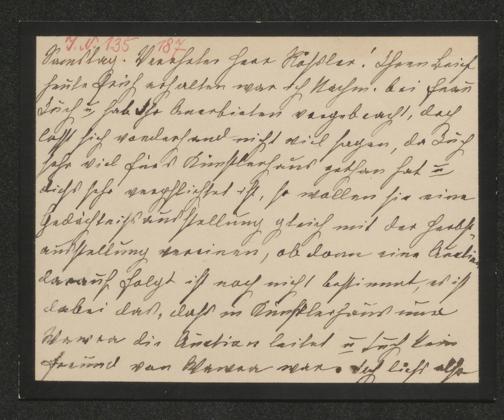 J. N. 135 187
Samstag. Verehrter Herr Roessler! Ihren Brief
heute früh erhalten war ich Nachm. bei Frau
Tuch u. hab Ihr Anerbieten vorgebracht, doch
läßt sich vonderhand nicht viel sagen, da Tuch
sehr viel fürs Künstlerhaus gethan hat u
dies sehr verpflichtet ist, so wollen sie eine
Gedächtnisausstellung gleich mit der Herbst-
ausstellung vereinen, ob dann eine Auction
darauf folgt ist noch nicht bestimmt, es ist
dabei das, daß im Künstlerhaus nur
Wawra die Auction leitet u Tuch kein
Freund von Wawra war.